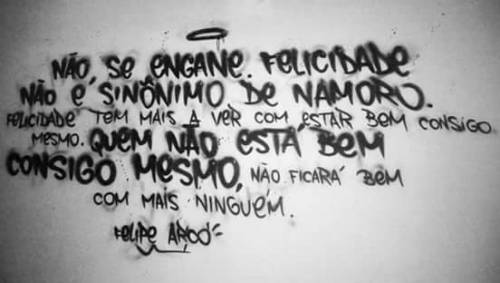 NÃO SE ENGANE. FELICIDADE
NÃO É SINÔNIMO DE NAMORO.
FELICIDADE TEM MAIS A VER COM ESTAR BEM CONSIGO
MESMO. QUEM NÃO ESTÁ BEM
CONSIGO MESMO, NÃO FICARÁ BEM
COM MAIS NINGUÉM.
FELIPE ARCO